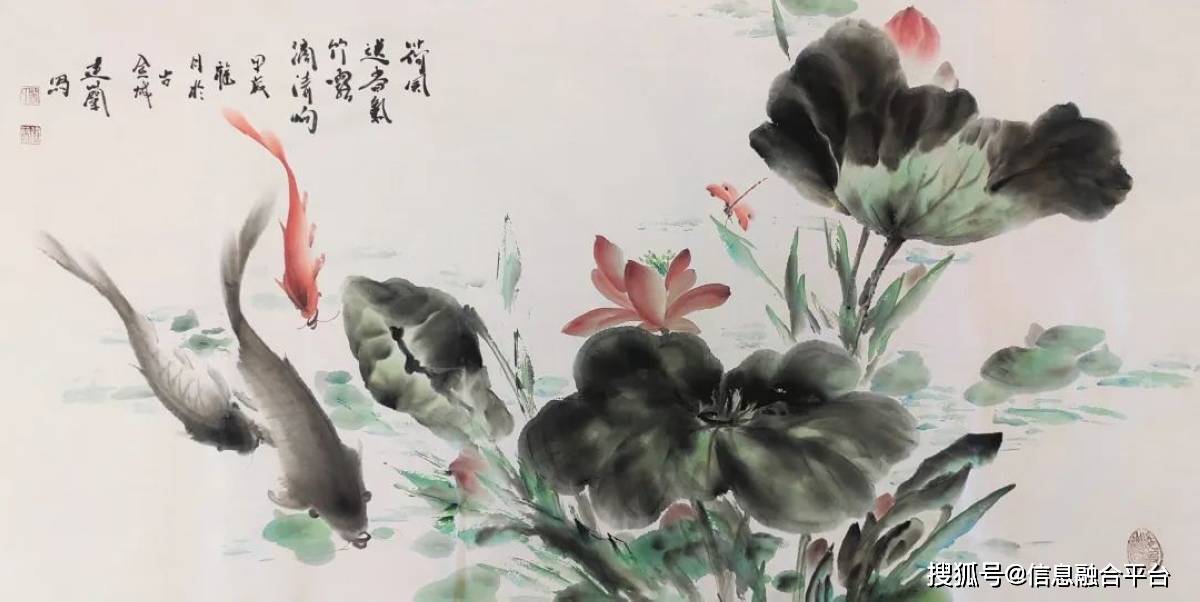 荷风
送香氣
竹露
滴清响
甲辰
龍
月於
古
金城
写
搜狐号@信息融合平台